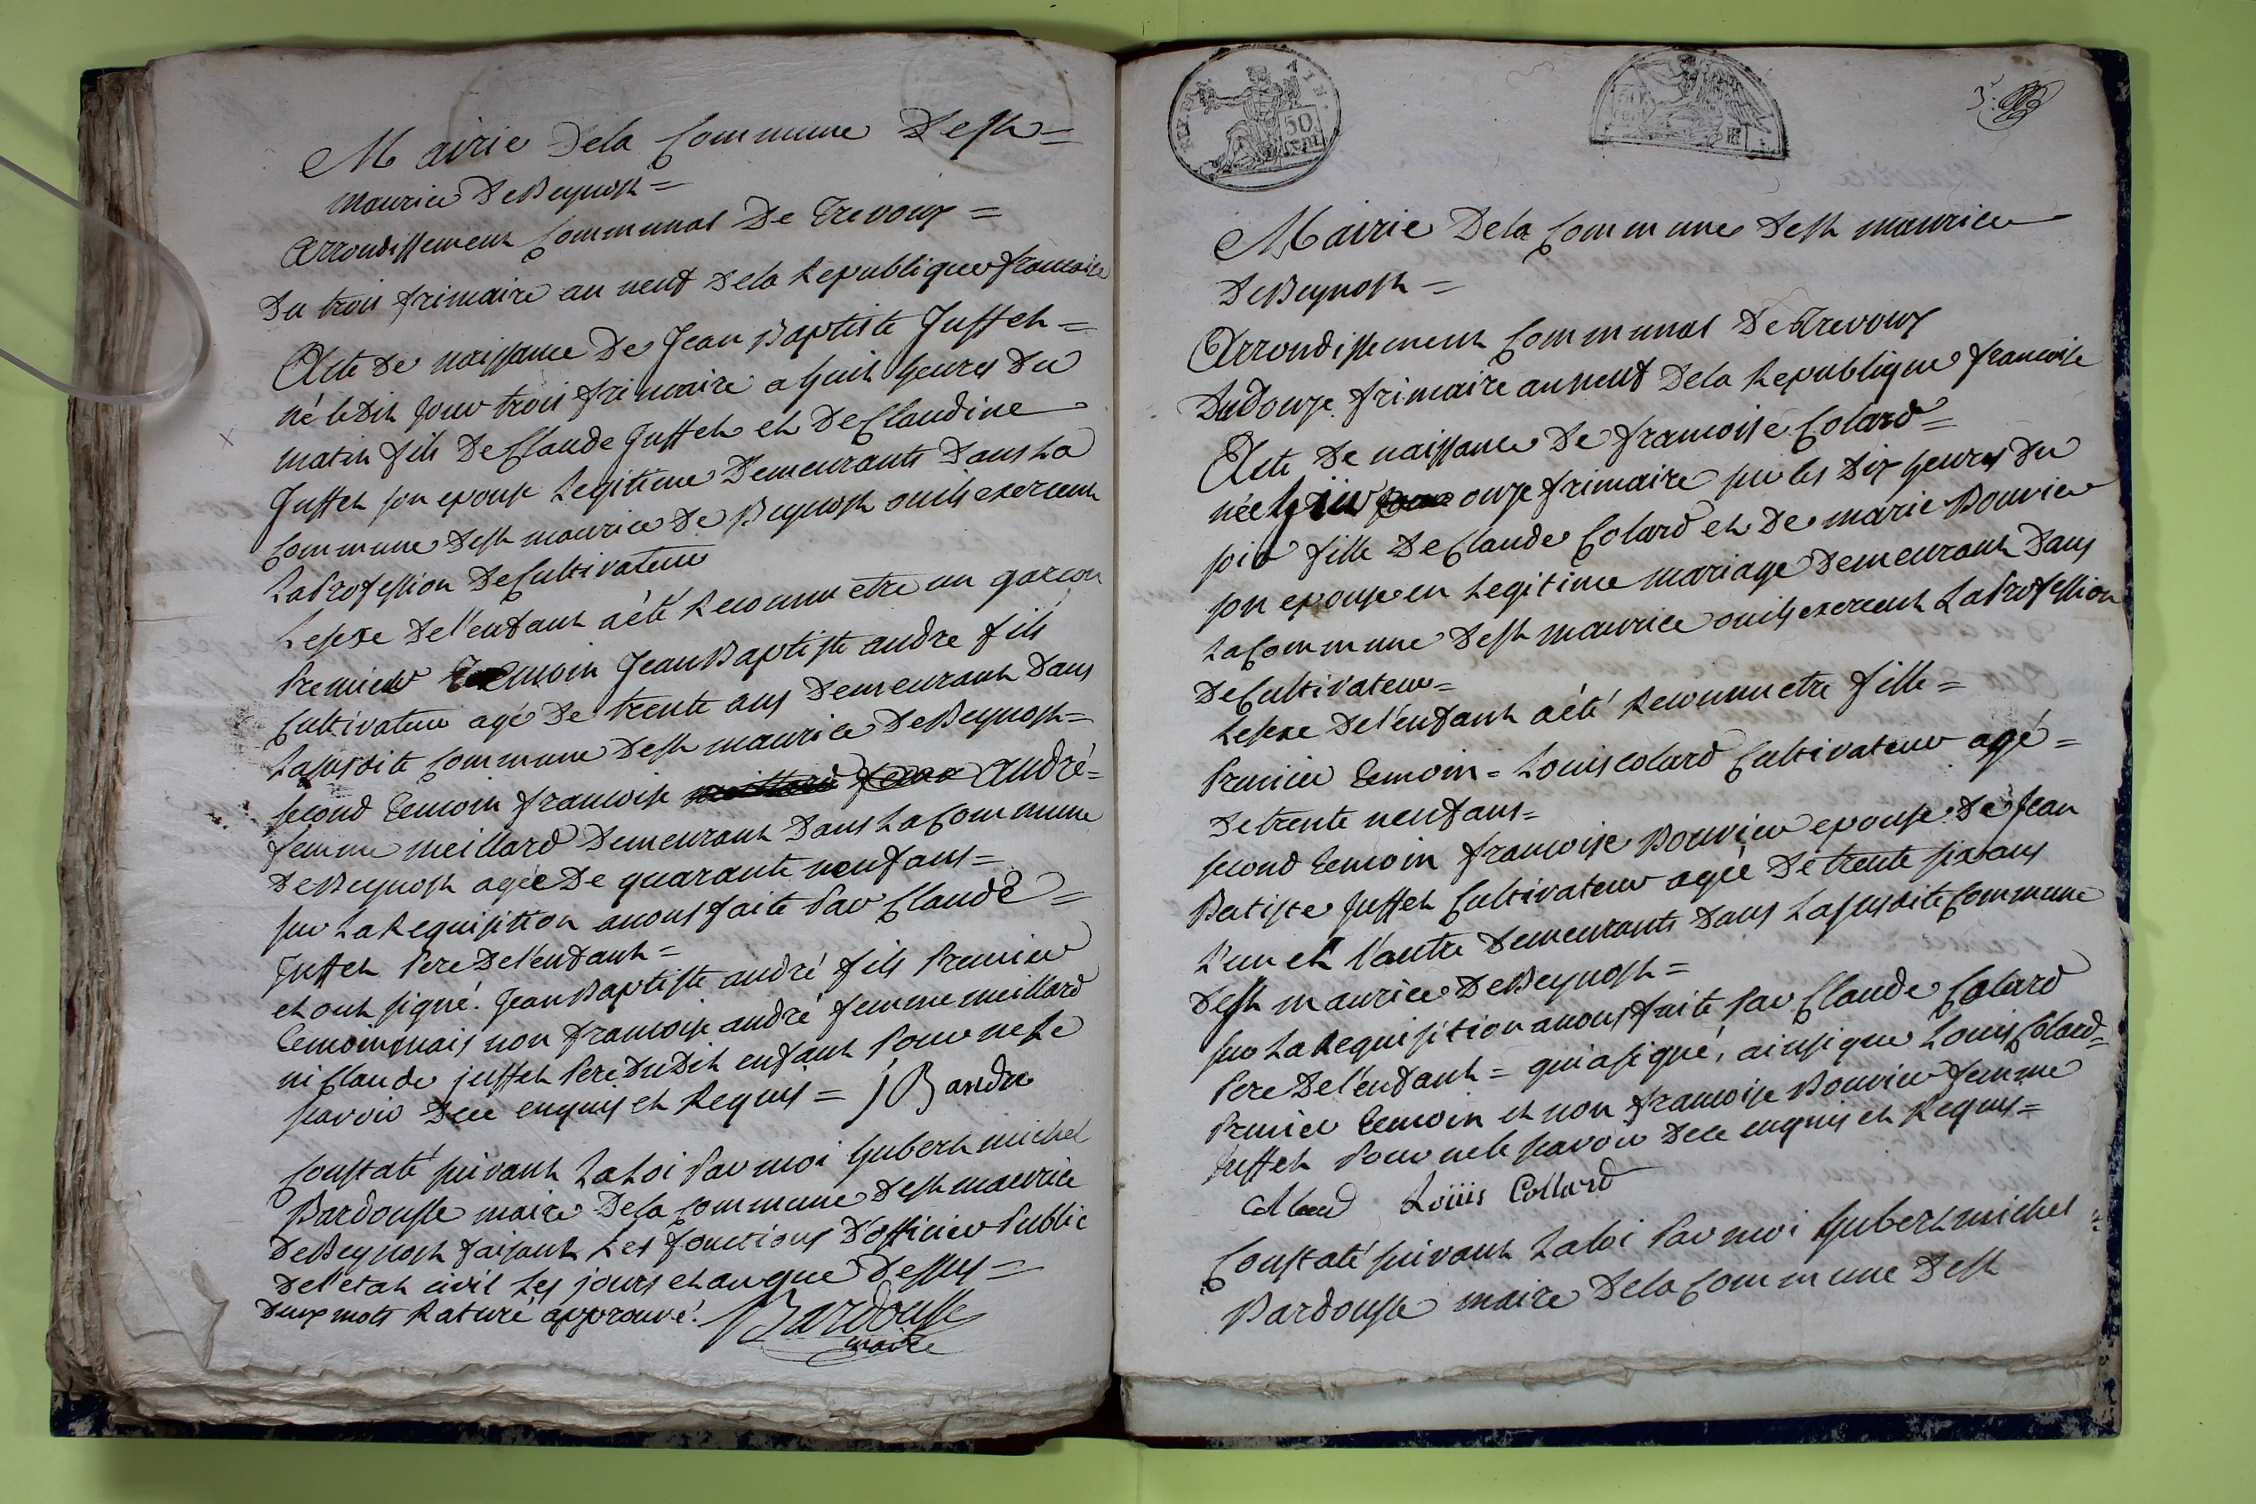 Mairie De la Commune De st =
maurice De Beynost =
Arrondissement Communal De Trevoux =
Du trois frimaire an neuf De la Republique francaise
Acte De naissance De Jean Baptiste Juffet =
né le Dit jour trois frimaire a huit heures Du
matin fils De Claude Juffet et De Claudine
Juffet son epouse Legitime Demeurants Dans La
Commune De st maurice De Beynost ou ils exercent
La Profession De Cultivateur
Le sexe De l'enfant a été Reconnu etre un garcon
Premier Temoin Jean Baptiste andre fils
Cultivateur agé De trente ans Demeurant Dans
La susdite Commune De st maurice De Beynost =
second Temoin francoise andré =
femme meillard Demeurant Dans La Commune
De Beynost agée De quarante neuf ans =
sur La Requisition a nous faite Par Claude =
Juffet Pere De l'enfant =
et ont signé. Jean Baptiste andré fils Premier
Temoin mais non francoise andré femme meillard
ni Claude juffet Pere Du Dit enfant Pour ne Le
savoir De ce enquis et Requis = J B andre
Constaté suivant La Loi Par moi hubert michel
Bardousse maire De la Commune De st maurice
De Beynost faisant Les fonctions D'officier Public
De l'etat civil Les jours et an que Dessus =
Deux mots Raturé approuvé. Bardousse
maire
AIN.
50
cent
50
3.
Mairie De la Commune De st maurice
De Beynost =
Arrondissement Communal De Trevoux
Du Douze frimaire an neuf De la Republique francoise
Acte De naissance De francoise Colard =
née hier onze frimaire sur les Dix heures Du
soir fille De Claude Colard et De marie Bouvier
son epouse en Legitime mariage Demeurant Dans
La Commune De st maurice ou ils exercent La Profession
De Cultivateur =
Le sexe De l'enfant a été Reconnu etre fille =
Premier Temoin = Louis colard Cultivateur agé =
De trente neuf ans =
second Temoin francoise Bouvier epouse De Jean
Batiste Juffet Cultivateur agée De trente six ans
L'un et l'autre Demeurants Dans La susdite Commune
De st maurice De Beynost =
sur La Requisition a nous faite Par Claude Colard
Pere De l'enfant = qui a signé, ainsi que Louis Colard =
Premier Temoin et non francoise Bouvier femme
Juffet Pour ne le savoir De ce enquis et Requis =
Louis Collard
Constaté suivant La Loi Par moi hubert michel
Bardousse maire De la Commune De st